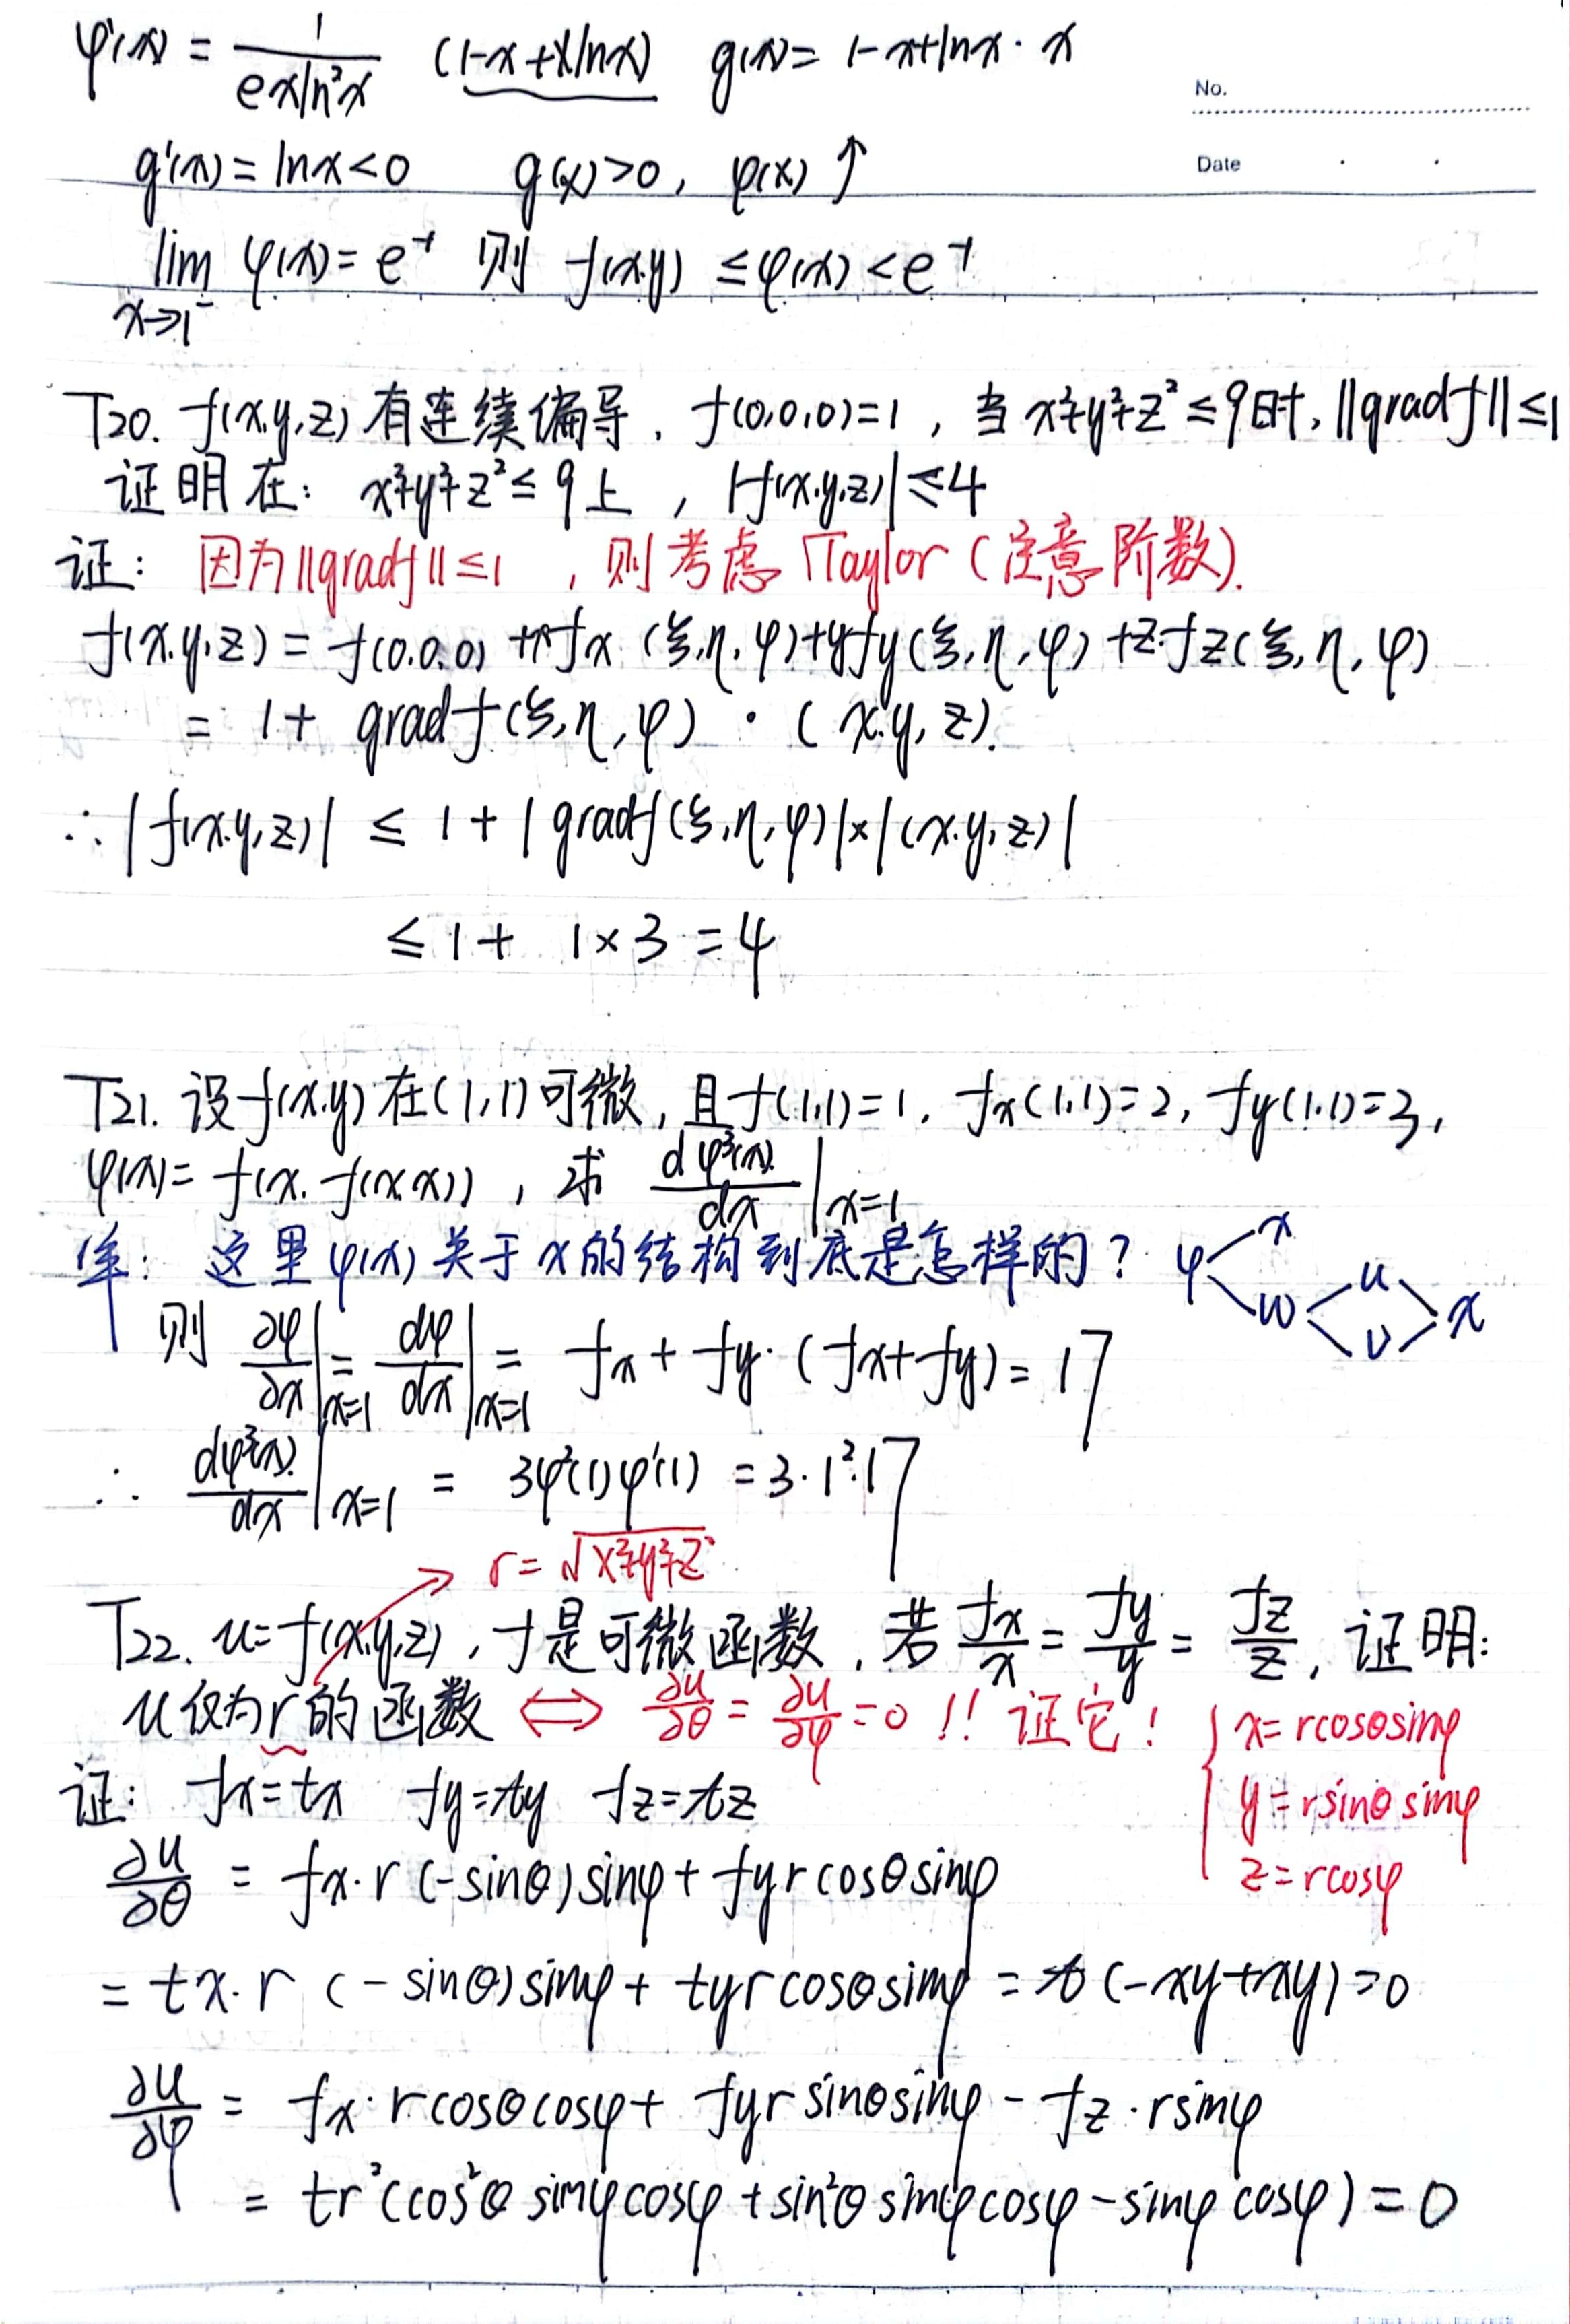 φ'(x) = 1/(exln²x) (1-x+xlnx) g(x)= 1-x+lnx·x
No.
g'(x)= lnx<0 g(x)>0, φ(x)↑
Date
lim φ(x)= e⁻¹ 则 f(x,y) ≤φ(x)<e⁻¹
x→1⁻
T20. f(x,y,z)有连续偏导, f(0,0,0)=1, 当x²+y²+z²≤9时, ||gradf||≤1
证明在: x²+y²+z²≤9上, |f(x,y,z)|≤4
证: 因为||gradf||≤1, 则考虑Taylor(注意阶数).
f(x,y,z) = f(0,0,0)+xfx(ξ,η,φ)+yfy(ξ,η,φ)+z·fz(ξ,η,φ)
= 1+ gradf(ξ,η,φ)·(x,y,z).
∴|f(x,y,z)| ≤ 1+|gradf(ξ,η,φ)|×|(x,y,z)|
≤ 1+ 1×3 =4
T21. 设f(x,y)在(1,1)可微, 且f(1,1)=1, fx(1,1)=2, fy(1,1)=3,
φ(x)= f(x, f(x,x)), 求 dφ³(x)/dx|x=1
解: 这里φ(x)关于x的结构到底是怎样的? φ x w u v x
则 ∂φ/∂x|x=1 = dφ/dx|x=1 = fx+fy·(fx+fy)=17
∴ dφ³(x)/dx|x=1 = 3φ²(1)φ'(1) =3·1²·17
r=√x²+y²+z²
T22. u=f(x,y,z), f是可微函数, 若 fx/x = fy/y = fz/z, 证明:
u仅为r的函数 ⇔ ∂u/∂θ = ∂u/∂φ =0!! 证它!
x=rcosθsinφ
证: fx=tx fy=ty fz=tz
y=rsinθsinφ
z=rcosφ
∂u/∂θ = fx·r(-sinθ)sinφ+fyrcosθsinφ
= tx·r(-sinθ)sinφ+tyrcosθsinφ = t(-xy+xy)=0
∂u/∂φ = fx·rcosθcosφ+fyrsinθsinφ-fz·rsinφ
= tr²(cos²θsinφcosφ+sin²θsinφcosφ-sinφcosφ)=0